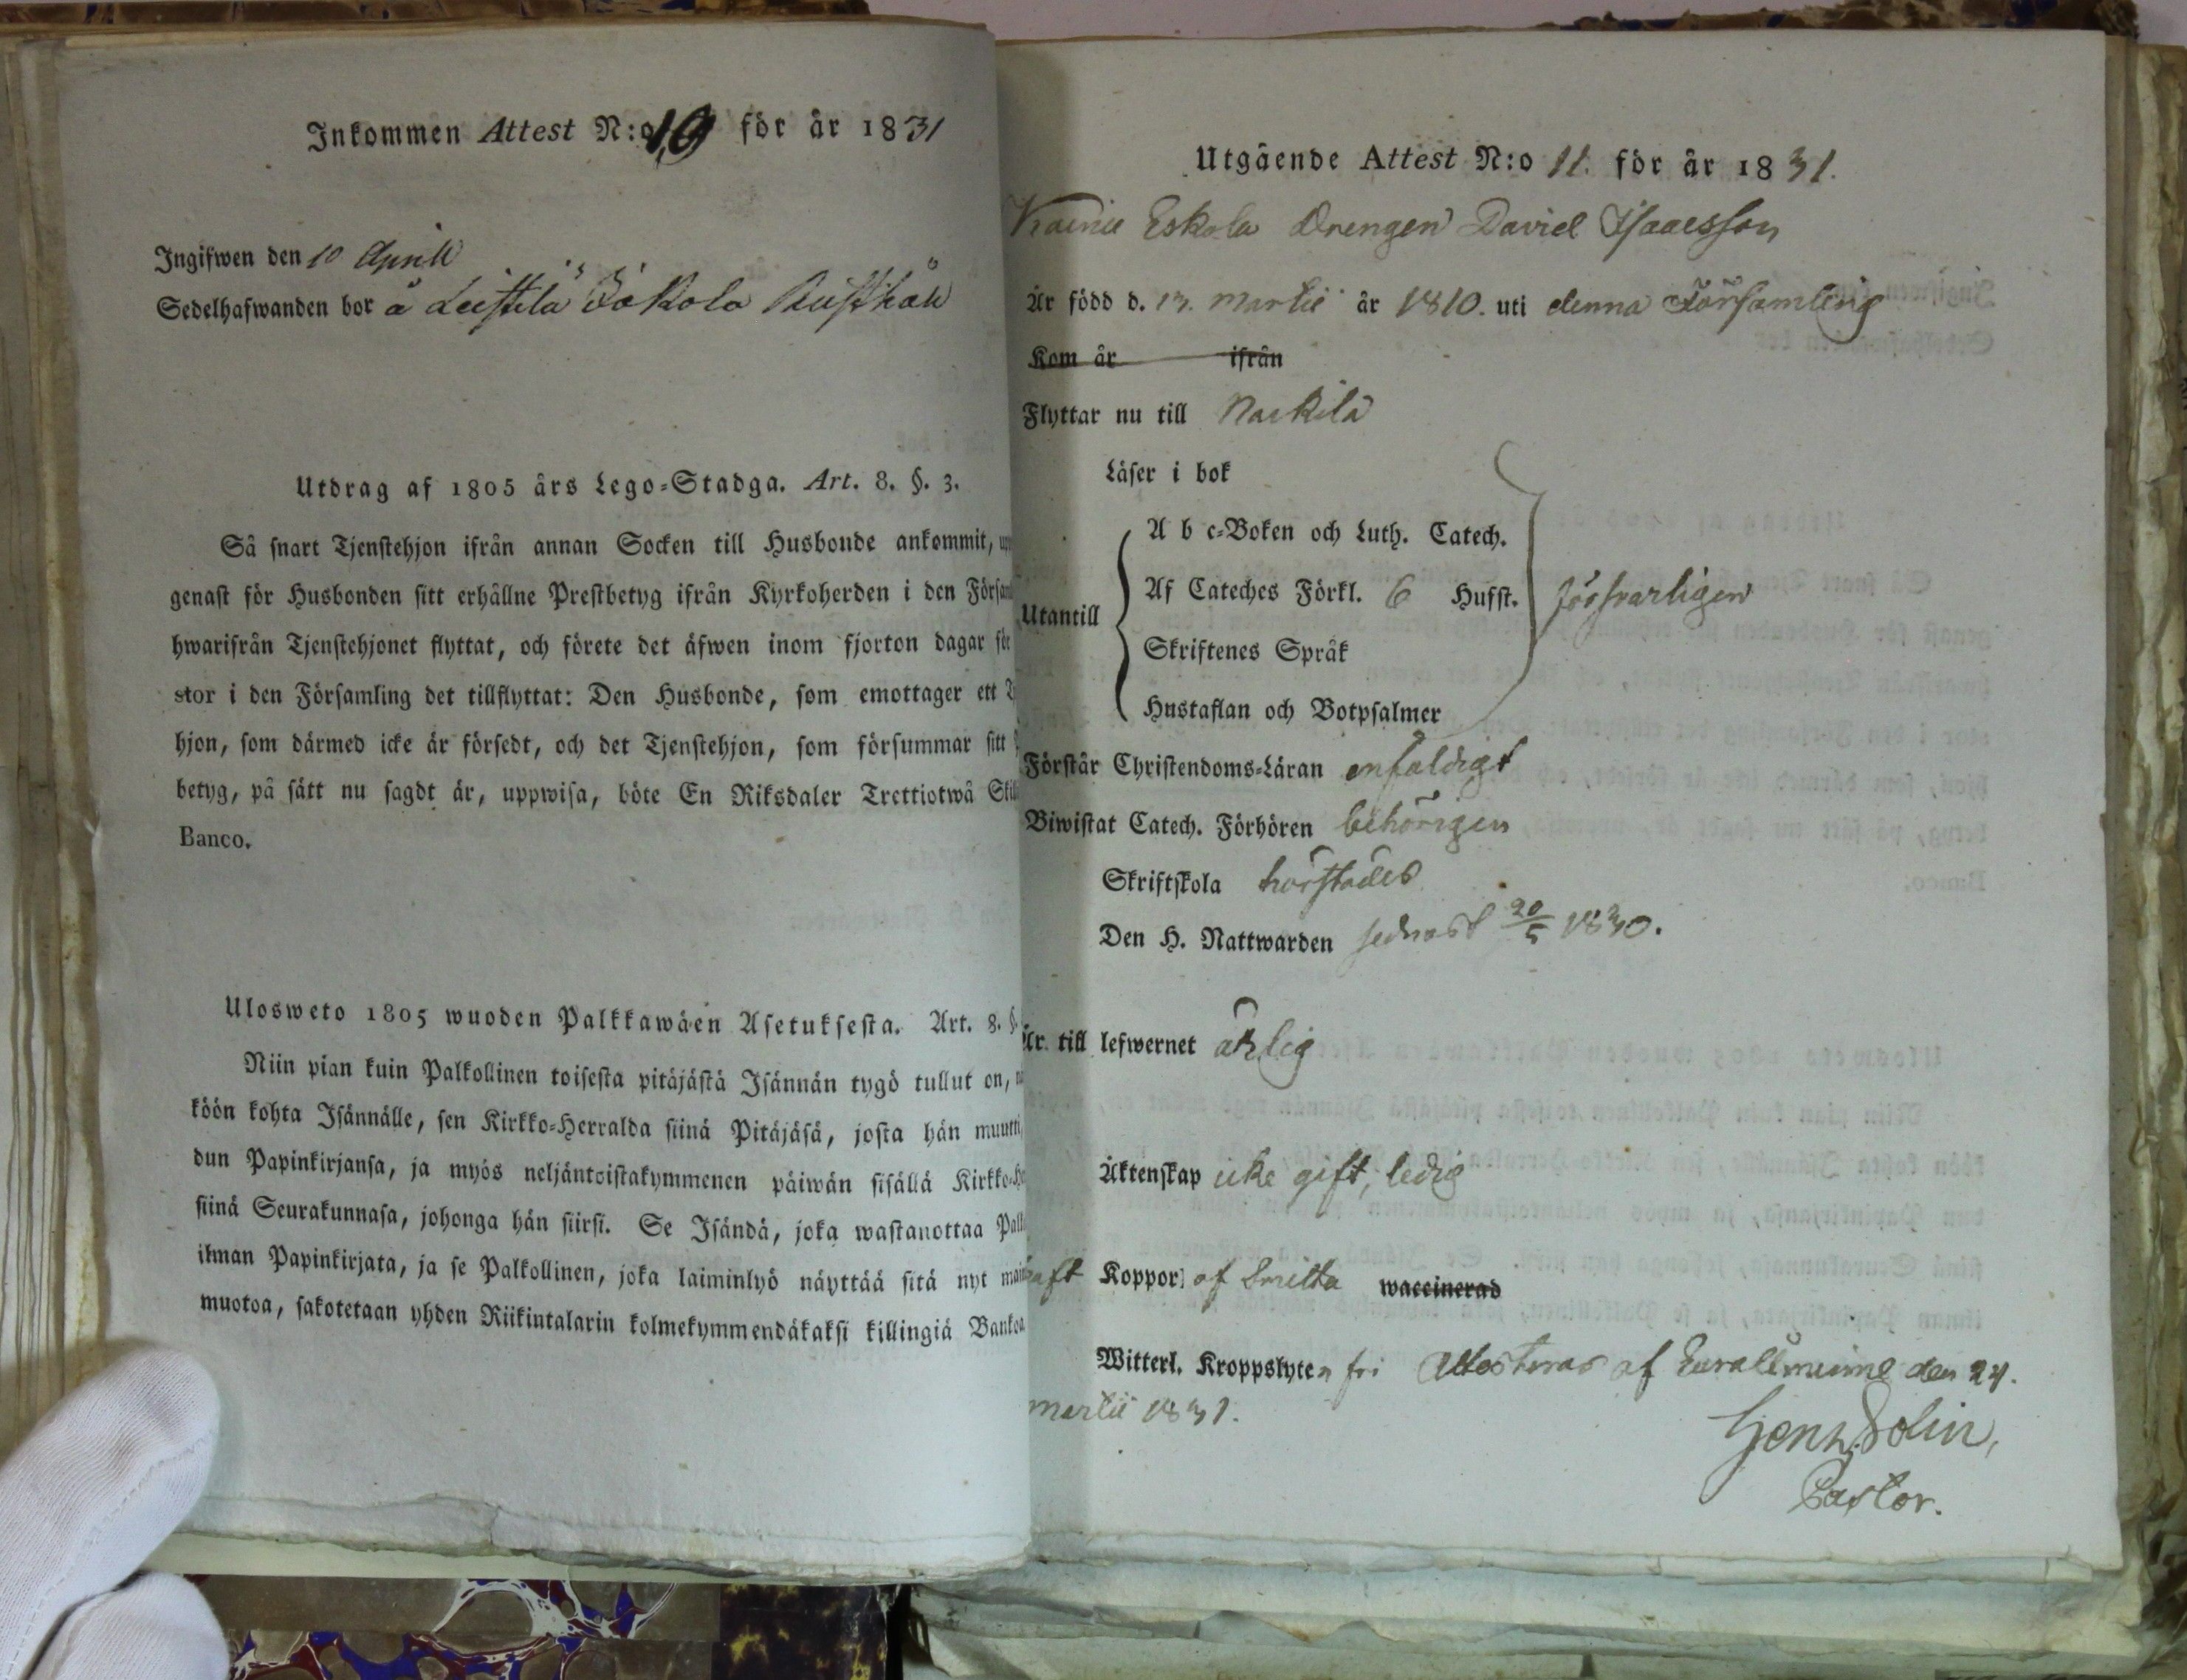 Inkommen Attest N:o 19 för år 1831
Ingifwen den 10 Aprill
Sedelhafwanden bor å Leistilä Jokola Rusthåll
Utdrag af 1805 års Lego-Stadga. Art. 8. §. 3.
Så snart Tjenstehjon ifrån annan Socken till Husbonde ankommit,
genast för Husbonden sitt erhållne Prestbetyg ifrån Kyrkoherden i den Försam
hwarifrån Tjenstehjonet flyttat, och förete det äfwen inom fjorton dagar för
stor i den Församling det tillflyttat: Den Husbonde, som emottager ett
hjon, som därmed icke är försedt, och det Tjenstehjon, som försummar sitt
betyg, på sätt nu sagdt är, uppwisa, böte En Riksdaler Trettiotwå Skil
Banco.
Ulosweto 1805 wuoden Palkkawäen Asetuksesta. Art. 8. §.
Niin pian kuin Palkollinen toisesta pitäjästä Isännän tygö tullut on,
köön kohta Isännälle, sen Kirkko-Herralda siinä Pitäjäsä, josta hän muutti,
dun Papinkirjansa, ja myös neljäntoistakymmenen päiwän sisällä Kirkko-He
siinä Seurakunnasa, johonga hän siirsi. Se Isändä, joka wastanottaa Palk
ilman Papinkirjata, ja se Palkollinen, joka laiminlyö näyttää sitä nyt main
muotoa, sakotetaan yhden Riikintalarin kolmekymmendäkaksi killingiä Bankoa
Utgående Attest N:o 11. för år 1831.
Eskola Drengen David Isaacsson
Är född d. 13. Martii år 1810. uti denna Församling
Kom år ifrån
Flyttar nu till Nackila
Läser i bok
A b c-Boken och Luth. Catech.
Af Cateches Förkl. 6 Hufst.
Utantill
försvarligen
Skriftenes Språk
Hustaflan och Botpsalmer
Förstår Christendoms-Läran enfaldigt
Biwistat Catech. Förhören behörigen
Skriftskola härstädes
Den H. Nattwarden sednast 20/5 1830.
Är till lefwernet ärlig
Äktenskap icke gift, ledig
haft Koppor af Smitta waccinerad
Witterl. Kroppslyten fri Attesteras af Euraåminne den 24.
martii 1831.
Henr. Bolin,
Pastor.